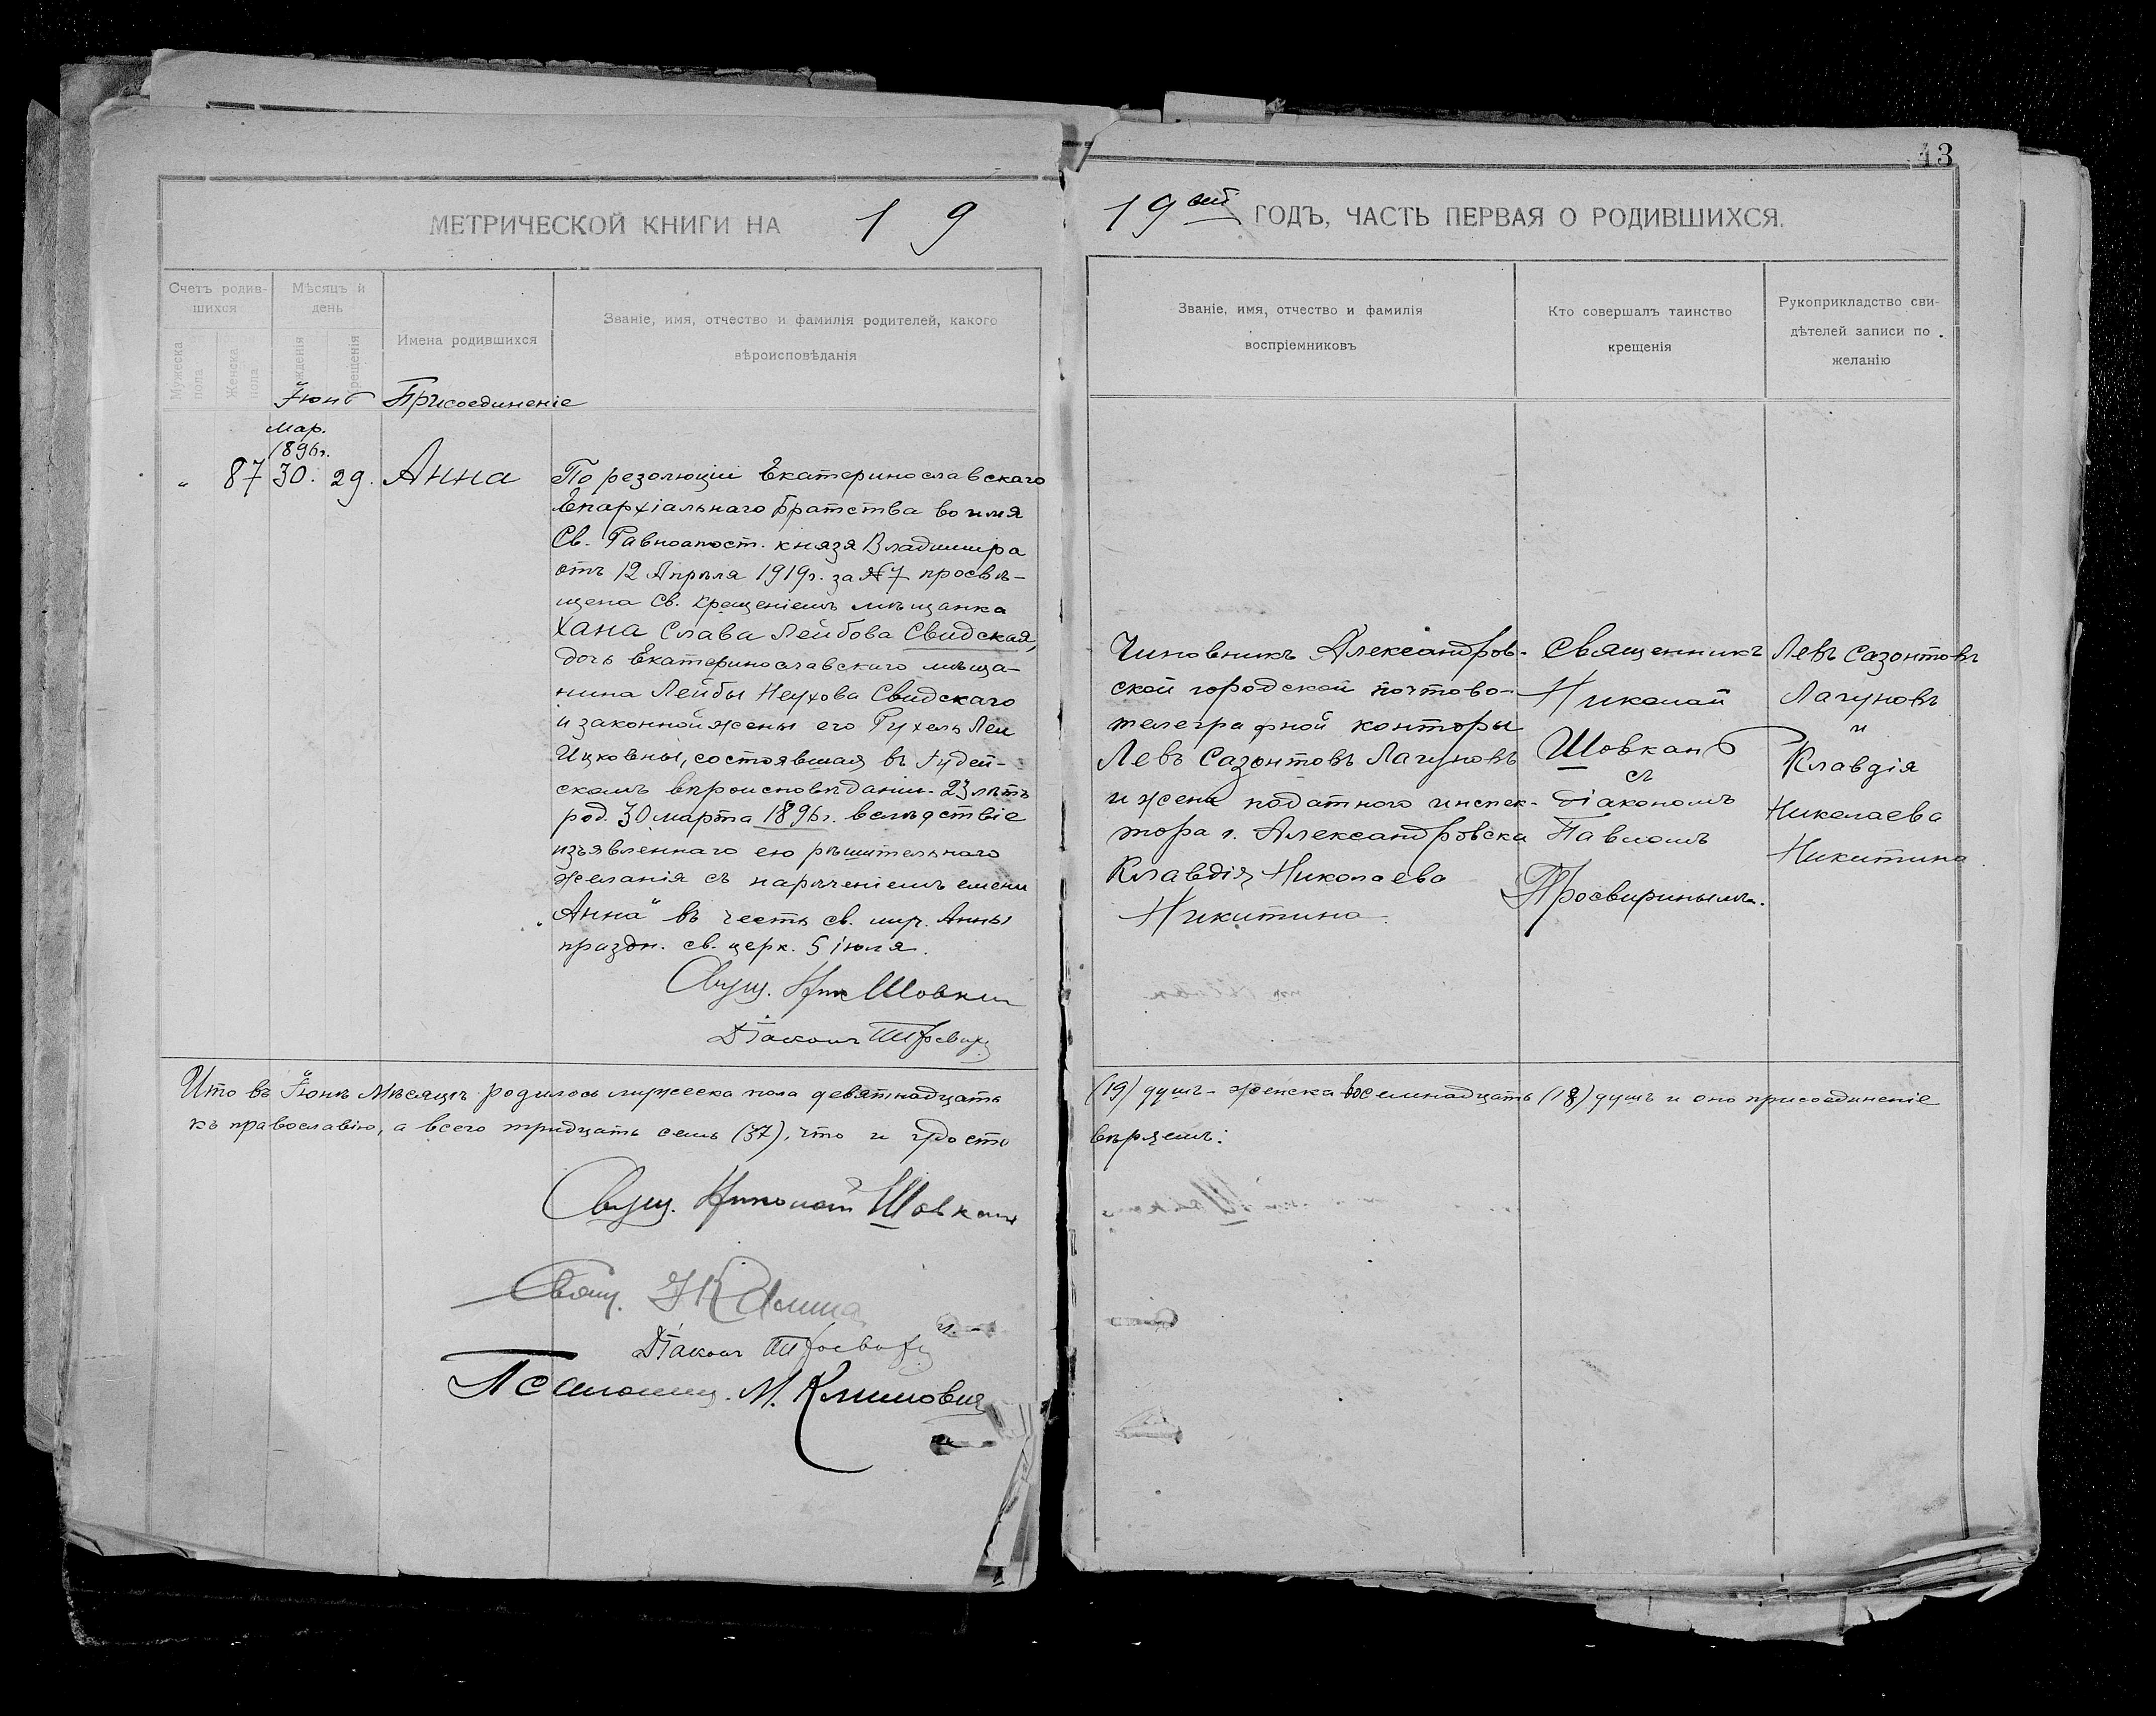 13
МЕТРИЧЕСКОЙ КНИГИ НА 19
19ый ГОДЪ, ЧАСТЬ ПЕРВАЯ О РОДИВШИХСЯ.
Счетъ родив-
шихся
Мужеска пола
Женска пола
Мѣсяцъ и
день
рожденія
крещенія
Имена родившихся
Званіе, имя, отчество и фамилія родителей, какого
вѣроисповѣданія
Званіе, имя, отчество и фамилія
воспріемниковъ
Кто совершалъ таинство
крещенія
Рукоприкладство сви-
дѣтелей записи по
желанію
Іюнь Присоединеніе
Мар.
1896г.
„ 87 30. 29. Анна
По резолюціи Екатеринославскаго
Епархіальнаго Братства во имя
Св. Равноапост. князя Владимира
отъ 12 Апрѣля 1919г. за № 7 просвѣ-
щена Св. Крещеніемъ мѣщанка
Хана Слава Лейбова Свидская,
дочь Екатеринославскаго мѣща-
нина Лейбы Неухова Свидскаго
и законной жены его Рухель Леи
Ицковны, состоявшая въ Іудей-
скомъ вѣроисповѣданіи. 23 лѣтъ
род. 30 марта 1896г. вслѣдствіе
изъявленнаго ею рѣшительнаго
желанія съ нареченіемъ имени
„Анна" въ честь св. мир. Анны
праздн. св. церк. 5 іюля.
Свящ. Ник Шовкан
Діаконъ Просвир
Чиновникъ Александров-
ской городской почтово-
телеграфной конторы
Левъ Сазонтовъ Лагуновъ
и жена податного инспек-
тора г. Александровска
Клавдія Николаева
Никитина
Священникъ
Николай
Шовкань
съ
діакономъ
Павломъ
Просвиринымъ.
Левъ Сазонтовъ
Лагуновъ
и
Клавдія
Николаева
Никитина
Что въ Іюнѣ мѣсяцѣ родилось мужеска пола девятнадцать (19) душъ - женска восемнадцать (18) душъ и одно присоединеніе
къ православію, а всего тридцать семь (37), что и удосто вѣряемъ:
Свящ. Николай Шовкан
Свящ. Калина
Діаконъ Просвир
Псаломщ. М. Климович